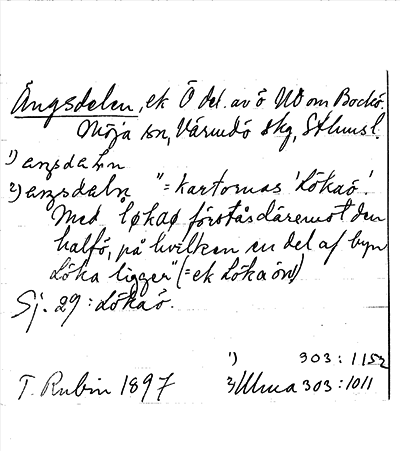 Ängsdelen, ek Ö del. av ö NO om Bockö.
Möja sn, Värmdö skg, Sthmsl.
1) anzdaln
2) anzdaln "= kartornas 'Lökaö'.
Med løkaø förstås däremot den
halfö, på hvilken en del af byn
Löka ligger" (= ek Löka ön)
Sj. 29: Lökaö.
1) 303: 1152
T. Rubin 1897 2) Uma 303: 1011